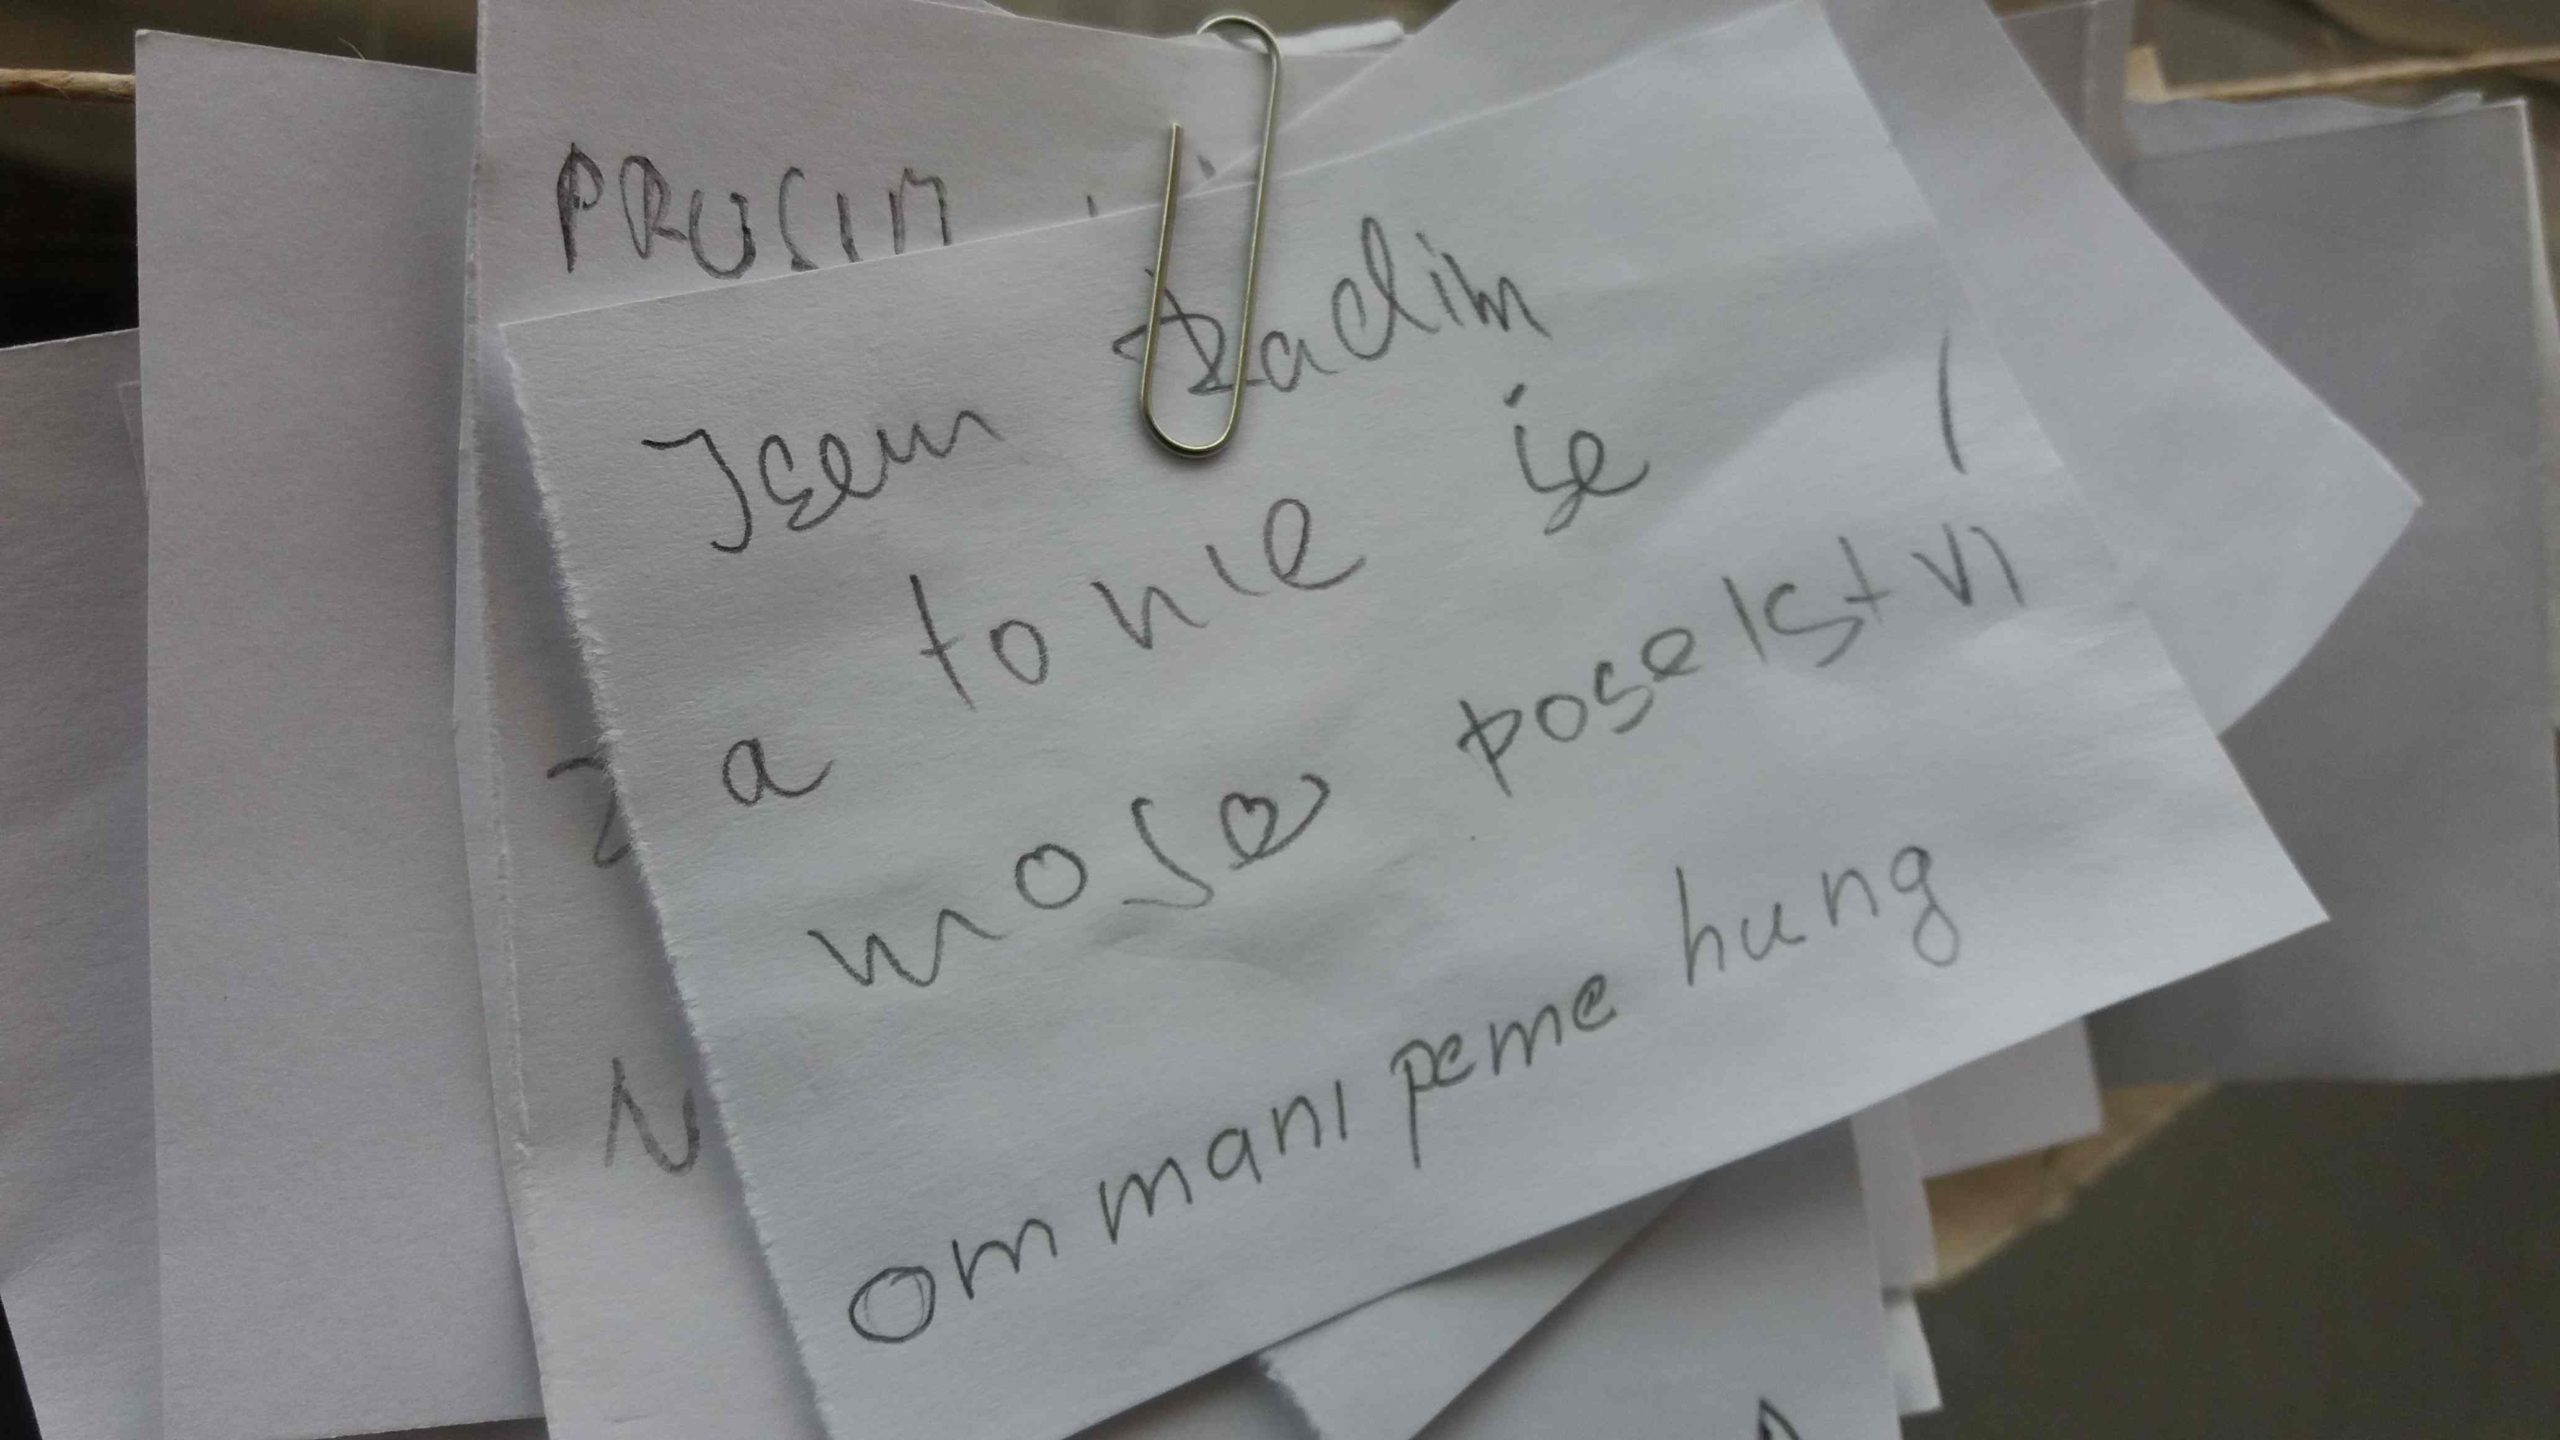 PROSIM
Jsem Radim
a tohle je
moje poselství
om mani peme hung